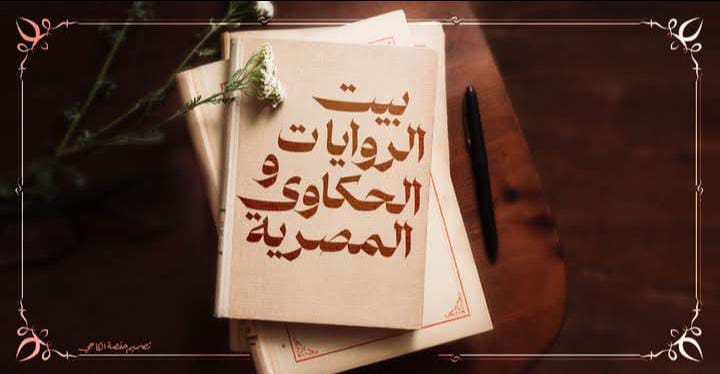 بيت
الروايات
و
الحكاوى
المصرية
تصميم حفصة الكاحي